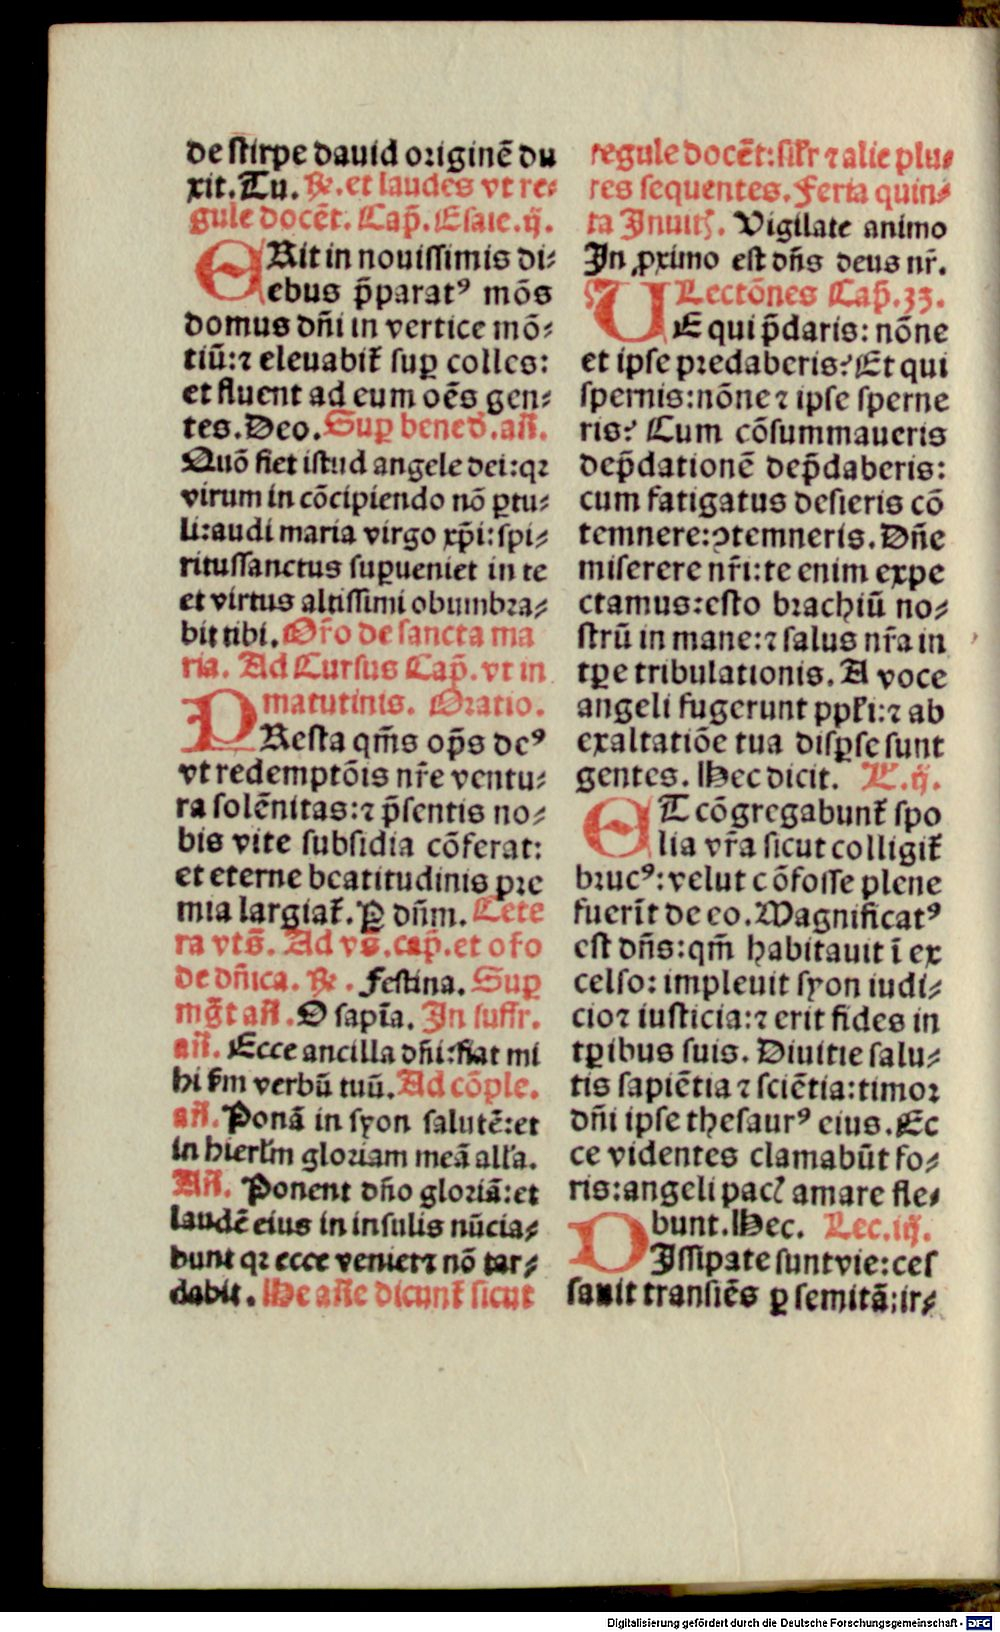 de stirpe dauid originē du
xit. Tu. ℟. et laudes vt re⸗
gule docēt. Cap̄. Esaie. ij.
ERit in nouissimis di⸗
ebus p̄paratꝰ mōs
domus dn̄i in vertice mō⸗
tiū: ⁊ eleuabit̄ suꝑ colles:
et fluent ad eum oēs gen⸗
tes. Deo. Suꝑ bened̄. an̄.
Quō fiet istud angele dei: qꝛ
virum in cōcipiendo nō ꝑtu⸗
li: audi maria virgo xp̄i: spi⸗
ritussanctus suꝑueniet in te
et virtus altissimi obumbra⸗
bit tibi. Or̄o de sancta ma
ria. Ad Cursus Cap̄. vt in
matutinis. Oratio.
PResta qm̄s op̄s deꝰ
vt redemptōis nr̄e ventu⸗
ra solēnitas: ⁊ p̄sentis no⸗
bis vite subsidia cōferat:
et eterne beatitudinis pre
mia largiat̄. Ꝑ dn̄m. Cete
ra vts̄. Ad vs̄. cap̄. et oro
de dn̄ica. ℟. Festina. Suꝑ
mḡt an̄. O sapīa. In suffr.
an̄. Ecce ancilla dn̄i: fiat mi
hi s̄m verbū tuū. Ad cōple.
an̄. Ponā in syon salutē: et
in hierl̄m gloriam meā all̄a.
An̄. Ponent dn̄o gloriā: et
laudē eius in insulis nūcia⸗
bunt qꝛ ecce veniet ⁊ nō tar⸗
dabit. He an̄e dicunt̄ sicut
regule docēt: sil̄r ⁊ alie plu⸗
res sequentes. Feria quin⸗
ta Inuit̄. Vigilate animo
In ꝓximo est dn̄s deus nr̄.
Lectōnes Cap̄. 33.
UE qui p̄daris: nōne
et ipse predaberis? Et qui
spernis: nōne ⁊ ipse sperne
ris? Cum cōsummaueris
dep̄dationē dep̄daberis:
cum fatigatus desieris cō
temnere: ꝯtemneris. Dn̄e
miserere nr̄i: te enim expe
ctamus: esto brachiū no⸗
strū in mane: ⁊ salus nr̄a in
tꝑe tribulationis. A voce
angeli fugerunt ppl̄i: ⁊ ab
exaltatiōe tua disꝑse sunt
gentes. Hec dicit. L. ij.
ET cōgregabunt̄ spo
lia vr̄a sicut colligit̄
brucꝰ: velut cōfosse plene
fuerīt de eo. Magnificatꝰ
est dn̄s: qm̄ habitauit ī ex
celso: impleuit syon iudi⸗
cio ⁊ iusticia: ⁊ erit fides in
tꝑibus suis. Diuitie salu⸗
tis sapiētia ⁊ sciētia: timor
dn̄i ipse thesaurꝰ eius. Ec
ce videntes clamabūt fo⸗
ris: angeli pac̄ amare fle⸗
bunt. Hec. Lec. iij.
DIssipate sunt vie: ces
sauit transiēs ꝑ semitā: ir⸗
Digitalisierung gefördert durch die Deutsche Forschungsgemeinschaft - DFG